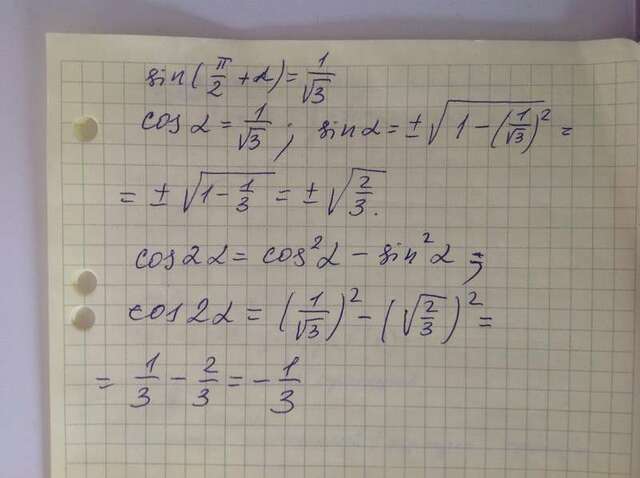 sin(π/2 + α) = 1/√3
cos α = 1/√3; sin α = ±√(1 − (1/√3)²) =
= ±√(1 − 1/3) = ±√(2/3).
cos 2α = cos²α − sin²α;
cos 2α = (1/√3)² − (√(2/3))² =
= 1/3 − 2/3 = − 1/3